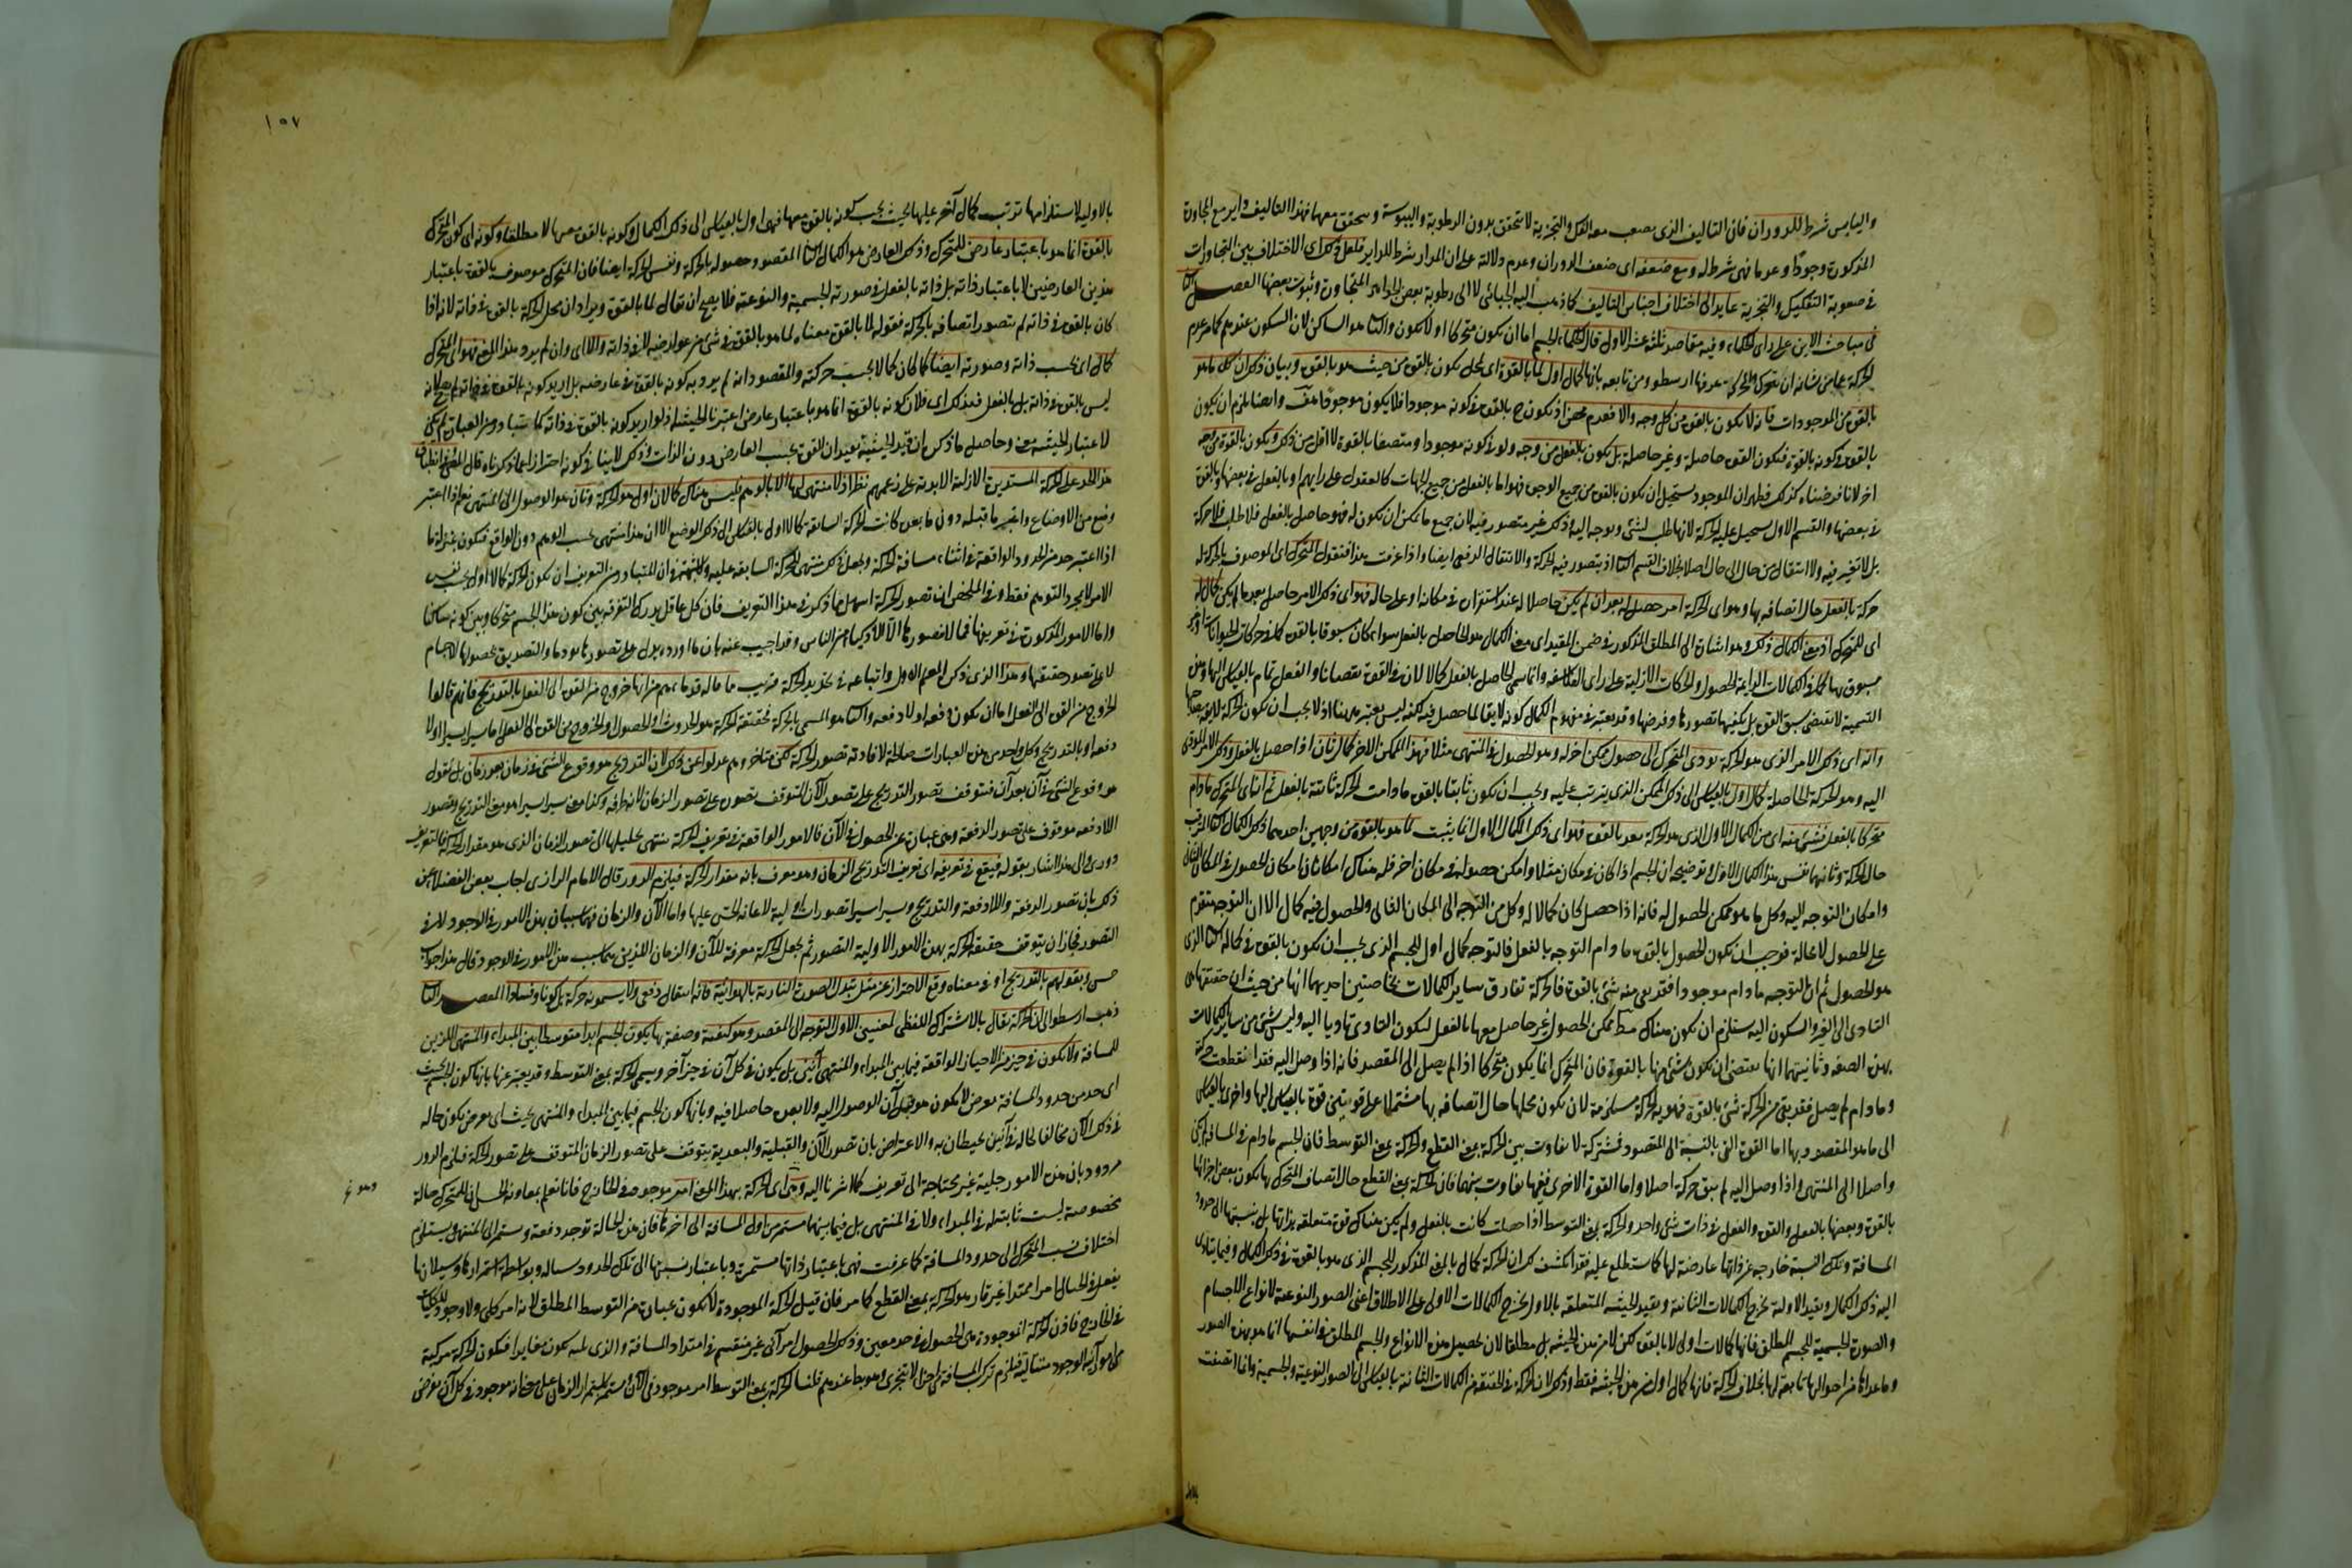 واليابس شرط للدوران فان التاليف الذى يصعب معه الفك والتجزية لا يتحقق بدون الرطوبة واليبوسة ويتحقق معهما فهذا التاليف داير مع المجاورة
المذكورة وجودًا وعدما فهى شرط له ومع ضعفه اى ضعف الدوران وعدم دلالته على ان المدار شرط للداير فلعل ذلك اى الاختلاف بين المتجاورات
فى صعوبة التفكيك والتجزية عايد الى اختلاف اجناس التاليف كما ذهب اليه الجبائى لا الى رطوبة بعض الجواهر المتجاورة ويبوسة بعضها الفصل
فى مباحث الاين على راى الحكماء وفيه مقاصد ثلثة عشر الاول قال الحكماء الجسم اما ان يكون متحركا او لا يكون والثانى هو الساكن لان السكون عندهم عدم
الحركة عما من شانه ان يتحرك والحركة عرفها ارسطو ومن تابعه بانها كمال اول لما بالقوة اى لمحل يكون بالقوة من حيث هو بالقوة وبيان ذلك ان كل ما هو
بالقوة من الموجودات فانه لا يكون بالقوة من كل وجه والا فعدم محض اذ يكون ح بالقوة فى كونه موجودا فلا يكون موجودًا هف وايضا يلزم ان يكون
بالقوة فى كونه بالقوة فيكون القوة حاصلة وغير حاصلة بل يكون بالفعل من وجه ولو فى كونه موجودا ومتصفا بالقوة لا اقل من ذلك ويكون بالقوة من وجه
اخر لانا فرضناه كذلك فظهر ان الموجود يستحيل ان يكون بالقوة من جميع الوجوه فهو اما بالفعل من جميع الجهات كالعقول على رايهم او بالفعل فى بعضها وبالقوة
فى بعضها والقسم الاول يستحيل عليه الحركة لانها طلب لشئ وتوجه اليه وذلك غير متصور فيه لان جميع ما يمكن ان يكون له فهو حاصل بالفعل فلا طلب فلا حركة
بل لا تغير فيه ولا انتقال من حال الى حال اصلا بخلاف القسم الثانى اذ يتصور فيه الحركة والانتقال الدفعى ايضا واذا عرفت هذا فنقول المتحرك اى الموصوف بالحركة له
حركة بالفعل حال اتصافه بها وهو اى الحركة امر حصل له بعد ان لم يكن حاصلا له عند استقراره فى مكانه او على حاله فهو اى ذلك الامر حاصل بعد ما لم يكن كمال له
اى للمتحرك اذ معنى الكمال ذلك وهو اشارة الى المطلق المذكور فى ضمن المقيد اى معنى الكمال هو الحاصل بالفعل سواء كان مسبوقا بالقوة كما فى حركات الحيوانات او غير
مسبوق بها كما فى الكمالات الدايمة الحصول والحركات الازلية على راى الفلاسفة وانما سمى الحاصل بالفعل كمالا لان فى القوة نقصانا والفعل تمام بالقياس اليها وهذه
التسمية لا تقتضى سبق القوة بل يكفيها تصورها وفرضها وقد يعتبر فى مفهوم الكمال كونه لايقا لما حصل فيه لكنه ليس يعتبر ههنا اذ لا يجب ان يكون الحركة لايقة بصاحبها
وانه اى ذلك الامر الذى هو الحركة يودى المتحرك الى حصول ممكن اخر له وهو الحصول فى المنتهى مثلا فهذا الممكن الاخر كمال ثان اذا حصل بالفعل وذلك الامر المودى
اليه وهو الحركة الحاصلة كمال اول بالقياس الى ذلك الممكن الذى يترتب عليه ويجب ان يكون ثانيا بالقوة ما دامت الحركة ثابتة بالفعل ثم انه اى المتحرك ما دام
متحركا بالفعل فشئ منه اى من الكمال الاول الذى هو الحركة بعد بالقوة فهو اى ذلك الكمال الاول انما يثبت لما هو بالقوة من وجهين احدهما ذلك الكمال الثانى المترتب
حال الحركة وثانيهما نفس هذا الكمال الاول وتوضيحه ان الجسم اذا كان فى مكان مثلا وامكن حصوله فى مكان اخر فله هناك امكانان امكان الحصول فى المكان الثانى
وامكان التوجه اليه وكل ما هو ممكن الحصول له فانه اذا حصل كان كمالا له وكل من التوجه الى المكان الثانى والحصول فيه كمال الا ان التوجه متقدم
على الحصول لا محالة فوجب ان يكون الحصول بالقوة ما دام التوجه بالفعل فالتوجه كمال اول للجسم الذى يجب ان يكون بالقوة فى كماله الثانى الذى
هو الحصول ثم ان التوجه ما دام موجودا فقد بقى منه شئ بالقوة فالحركة تفارق ساير الكمالات بخاصتين احديهما انها من حيث ان حقيقتها هى
التادى الى الغير والسكون اليه يستلزم ان يكون هناك مط ممكن الحصول غير حاصل معها بالفعل ليكون التادى تاديا اليه وليس شئ من ساير الكمالات
بهذه الصفة وثانيتهما انها تقتضى ان يكون شئ منها بالقوة فان المتحرك انما يكون متحركا اذا لم يصل الى المقصد فانه اذا وصل اليه فقد انقطعت حركته
وما دام لم يصل فقد بقى من الحركة شئ بالقوة فهوية الحركة مستلزمة لان يكون محلها حال اتصافه بها مشتملا على قوتين قوة بالقياس اليها واخرى بالقياس
الى ما هو المقصود بها اما القوة التى بالنسبة الى المقصود فمشتركة لا تفاوت بين الحركة بمعنى القطع والحركة بمعنى التوسط فان الجسم ما دام فى المسافة لم يكن
واصلا الى المنتهى واذا وصل اليه لم تبق حركة اصلا واما القوة الاخرى ففيها تفاوت بينهما فان الحركة بمعنى القطع حال اتصاف المتحرك بها يكون بعض اجزائها
بالقوة وبعضها بالفعل والقوة والفعل فى ذات شئ واحد والحركة بمعنى التوسط اذا حصلت كانت بالفعل ولم يكن هناك قوة متعلقة بذاتها بل بنسبتها الى حدود
المسافة وتلك النسبة خارجة عن ذاتها عارضة لها كما ستطلع عليه فقد انكشف لك ان الحركة كمال بالمعنى المذكور للجسم الذى هو بالقوة فى ذلك الكمال وفيما يتادى
اليه ذلك الكمال وبقيد الاولية تخرج الكمالات الثانية وبقيد الحيثية المتعلقة بالاول تخرج الكمالات الاولى على الاطلاق اعنى الصور النوعية لانواع الاجسام
والصورة الجسمية للجسم المطلق فانها كمالات اولى لما بالقوة لكن لا من هذه الحيثية بل مطلقا لان تحصيل هذه الانواع والجسم المطلق فى انفسها انما هو بهذه الصور
وما عداها من احوالها تابعة لها بخلاف الحركة فانها كمال اول من هذه الحيثية فقط وذلك لان الحركة فى الحقيقة من الكمالات الثانية بالقياس الى الصور النوعية والجسمية وانما اتصفت
١٥٧
بالاولية لاستلزامها ترتب كمال آخر عليها بحيث يجب كونه بالقوة معها فهى اول بالقياس الى ذلك الكمال وكونه بالقوة معها لا مطلقا وكونه اى كون المتحرك
بالقوة انما هو باعتبار عارض للمتحرك وذلك العارض هو الكمال الثانى المقصود حصوله بالحركة ونفس الحركة ايضا فان المتحرك موصوف بالقوة باعتبار
هذين العارضين لا باعتبار ذاته بل ذاته بالفعل فى صورته الجسمية والنوعية فلا يصح ان يقال لما بالقوة ويراد ان محل الحركة بالقوة فى ذاته لانه اذا
كان بالقوة فى ذاته لم يتصور اتصافه بالحركة فقوله لما بالقوة معناه لما هو بالقوة فى شئ من عوارضه لا فى ذاته والا اى وان لم يرد هذا المعنى فهو اى المتحرك
كمال اى بحسب ذاته وصورته ايضا كما كان كمالا بحسب حركته والمقصود انه لم يرد به كونه بالقوة فى عارضه بل اريد كونه بالقوة فى ذاته لم يصح لانه
ليس بالقوة فى ذاته بل بالفعل فبذلك اى فلان كونه بالقوة انما هو باعتبار عارض اعتبرنا الحيثية اذ لو اريد كونه بالقوة فى ذاته كما يتبادر من العبارة لم يكن
لاعتبار الحيثية معنى وحاصل ما ذكره ان قيد الحيثية يفيد ان القوة بحسب العارض دون الذات وذلك لا ينافى كونه احترازا عما ذكرناه قال المص وفى انطباق
هذا الحد على الحركة المستديرة الازلية الابدية على زعمهم نظر اذ لا منتهى لها الا بالوهم فليس هناك كمالان اول هو الحركة وثان هو الوصول الى المنتهى نعم اذا اعتبر
وضع من الاوضاع واعتبر ما قبله دون ما بعده كانت الحركة السابقة كمالا اول بالقياس الى ذلك الوضع الا ان هذا منتهى بحسب الوهم دون الواقع فيكون بمنزلة ما
اذا اعتبر حد من الحدود الواقعة فى اثناء مسافة الحركة وجعل ذلك منتهى للحركة السابقة عليه ولا شبهة فى ان المتبادر من التعريف ان يكون الحركة كمالا اول بحسب نفس
الامر لا بمجرد التوهم فقط وفى الملخص ان تصور الحركة اسهل مما ذكر فى هذا التعريف فان كل عاقل يدرك التفرقة بين كون هذا الجسم متحركا وبين كونه ساكنا
واما الامور المذكورة فى تعريفها فمما لا يتصورها الا الاذكياء من الناس وقد اجيب عنه بان ما اورده يدل على تصورها بوجه ما والتصديق بحصولها للاجسام
لا على تصور حقيقتها وهذا الذى ذكره المعلم الاول واتباعه فى تحديد الحركة قريب مما قاله قدماءهم من انها خروج من القوة الى الفعل بالتدريج فانهم قالوا
الخروج من القوة الى الفعل اما ان يكون دفعة او لا دفعة والثانى هو المسمى بالحركة فحقيقة الحركة هو الحدوث او الحصول او الخروج من القوة الى الفعل اما يسيرا يسيرا او لا
دفعة او بالتدريج وكل واحد من هذه العبارات صالحة لافادة تصور الحركة لكن متاخريهم عدلوا عن ذلك لان التدريج هو وقوع الشئ فى زمان بعد زمان بل نقول
هو وقوع الشئ فى آن بعد آن فيتوقف تصور التدريج على تصور الآن المتوقف تصوره على تصور الزمان لانه طرفه وكذا معنى يسيرا يسيرا هو معنى التدريج وتصور
اللادفعة موقوف على تصور الدفعة وهى عبارة عن الحصول فى الآن فالامور الواقعة فى تعريف الحركة ينتهى تحليلها الى تصور الزمان الذى هو مقدار الحركة فالتعريف
دورى والى هذا اشار بقوله فيقع فى تعريفه اى تعريف التدريج الزمان وهو معرف بانه مقدار الحركة فيلزم الدور قال الامام الرازى اجاب بعض الفضلاء عن
ذلك بان تصور الدفعة واللادفعة والتدريج ويسيرا يسيرا تصورات اولية لاعانة الحس عليها واما الآن والزمان فهما سببان لهذه الامور فى الوجود لا فى
التصور فجاز ان يتوقف حقيقة الحركة بهذه الامور الاولية التصور ثم يجعل الحركة معرفة للآن والزمان اللذين هما سبب هذه الامور فى الوجود وقال هذا جواب
حسن وبقولهم بالتدريج او فى معناه وقع الاحتراز عن مثل تبدل الصورة النارية بالهوائية فانه انتقال دفعى ولا يسمونه حركة بل كونا وفسادا المقصد الثانى
ذهب ارسطو الى ان الحركة تقال بالاشتراك اللفظى لمعنيين الاول التوجه الى المقصد وهو كيفية وصفة بها يكون الجسم ابدا متوسطا بين المبداء والمنتهى اللذين
للمسافة ولا يكون فى حيز من الاحياز الواقعة فيما بين المبداء والمنتهى آنين بل يكون فى كل آن فى حيز آخر ويسمى الحركة بمعنى التوسط وقد يعبر عنها بانها كون الجسم بحيث
اى حد من حدود المسافة يفرض لا يكون هو قبل آن الوصول اليه ولا بعده حاصلا فيه وبانها كون الجسم فيما بين المبداء والمنتهى بحيث اى آن يفرض يكون حاله
فى ذلك الآن مخالفا لحاله فى آنين يحيطان به والاعتراض بان تصور الآن والقبلية والبعدية يتوقف على تصور الزمان المتوقف على تصور الحركة فيلزم الدور
مردود بان هذه الامور جلية غير محتاجة الى تعريف كما اشرنا اليه وهى اى الحركة بهذا المعنى امر موجود فى الخارج فانا نعلم بمعاونة الحس ان للمتحرك حالة
مخصوصة ليست ثابتة له فى المبداء ولا فى المنتهى بل فيما بينهما مستمر من اول المسافة الى اخرها فان هذه الحالة توجد دفعة وتستمر الى المنتهى ويستلزم
اختلاف نسب المتحرك الى حدود المسافة كما عرفت فهى باعتبار ذاتها مستمرة وباعتبار نسبتها الى تلك الحدود سيالة وبواسطة استمرارها وسيلانها
يفعل فى الخيال امرا ممتدا غير قار هو الحركة بمعنى القطع كما مر فان قيل الحركة الموجودة لا تكون عبارة عن التوسط المطلق لانه امر كلى ولا وجود للكليات
فى الخارج فاذن الحركة الموجودة هى الحصول فى حد معين وذلك الحصول امر آنى غير منقسم فى امتداد المسافة والذى يليه يكون مغايرا فيكون الحركة مركبة
من امور آنية الوجود متتالية فيلزم تركب المسافة من اجزاء لا تتجزى وهو بط عندهم قلنا الحركة بمعنى التوسط امر موجود فى الآن ومستمر باستمرار الزمان على معنى انه موجود فى كل آن يفرض